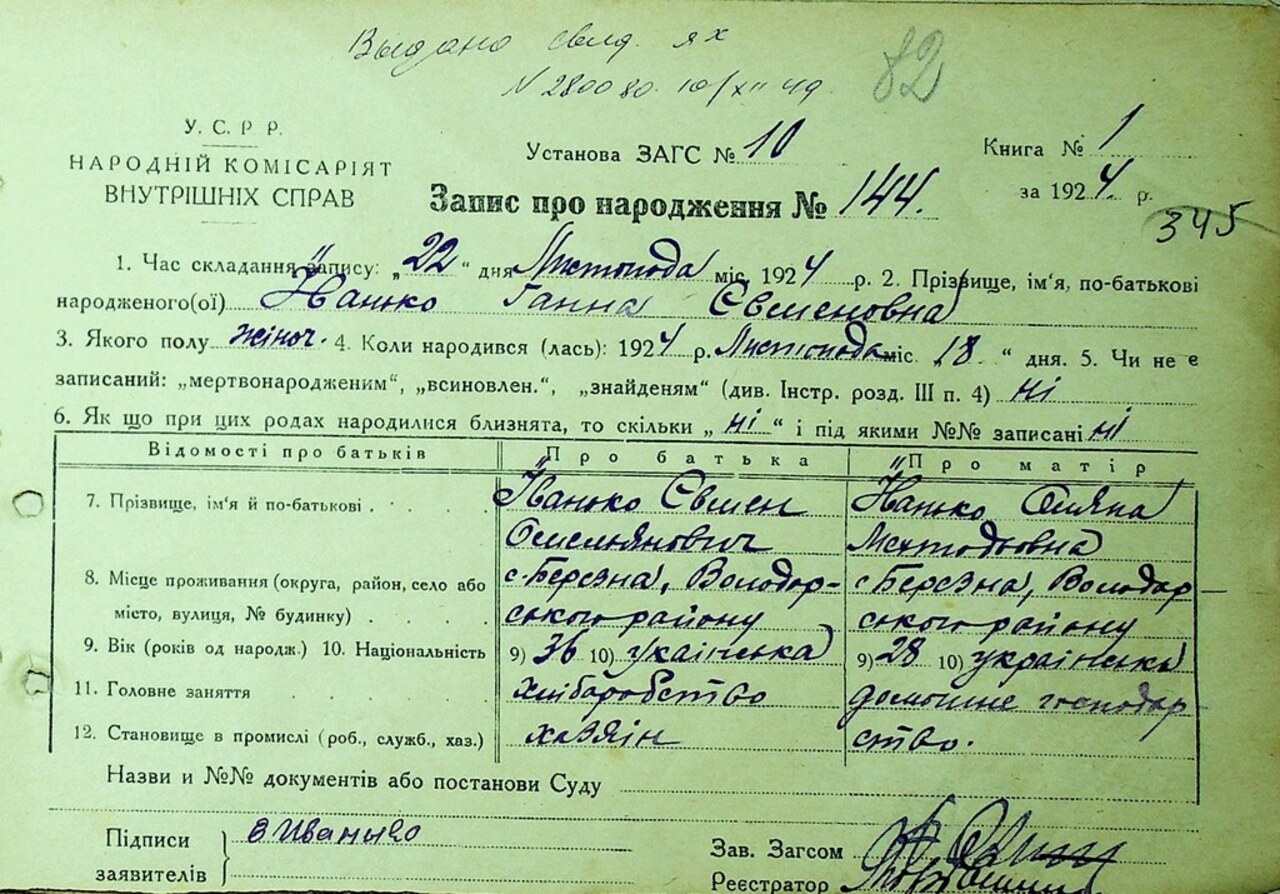 Выдано свид. ях
N 280080. 10/XII 49
82
У. С. Р Р.
НАРОДНІЙ КОМІСАРІЯТ
ВНУТРІШНІХ СПРАВ
Установа ЗАГС № 10
Книга № 1
за 1924 р.
Запис про народження № 144.
345
1. Час складання запису: „22“ дня Листопода міс. 1924 р. 2. Прізвище, ім'я, по-батькові
народженого(ої) Їванько Ганна Євменовна
3. Якого полу жіноч. 4. Коли народився (лась): 1924 р. Листопода міс. 18 “ дня. 5. Чи не є
записаний: „мертвонародженим“, „всиновлен.“, „знайденям“ (див. Інстр. розд. III п. 4) ні
6. Як що при цих родах народилися близнята, то скільки „ ні “ і під якими №№ записані ні
Відомості про батьків Про батька Про матір
7. Прізвище, ім'я й по-батькові . . . . Їванько Євмен Їванько Оляна
Омельянович Методьовна
8. Місце проживання (округа, район, село або с. Березна, Володар- с. Березна, Володар
місто, вулиця, № будинку) . . . . ського району ського району
9. Вік (років од народж.) 10. Національність 9) 36 10) украінська 9) 28 10) украінська
11. Головне заняття . . . . хліборобство домошнє господар
12. Становище в промислі (роб., служб., хаз.) хазяін ство.
Назви и №№ документів або постанови Суду
Підписи
заявителів
Е Иванько
Зав. Загсом
Реєстратор